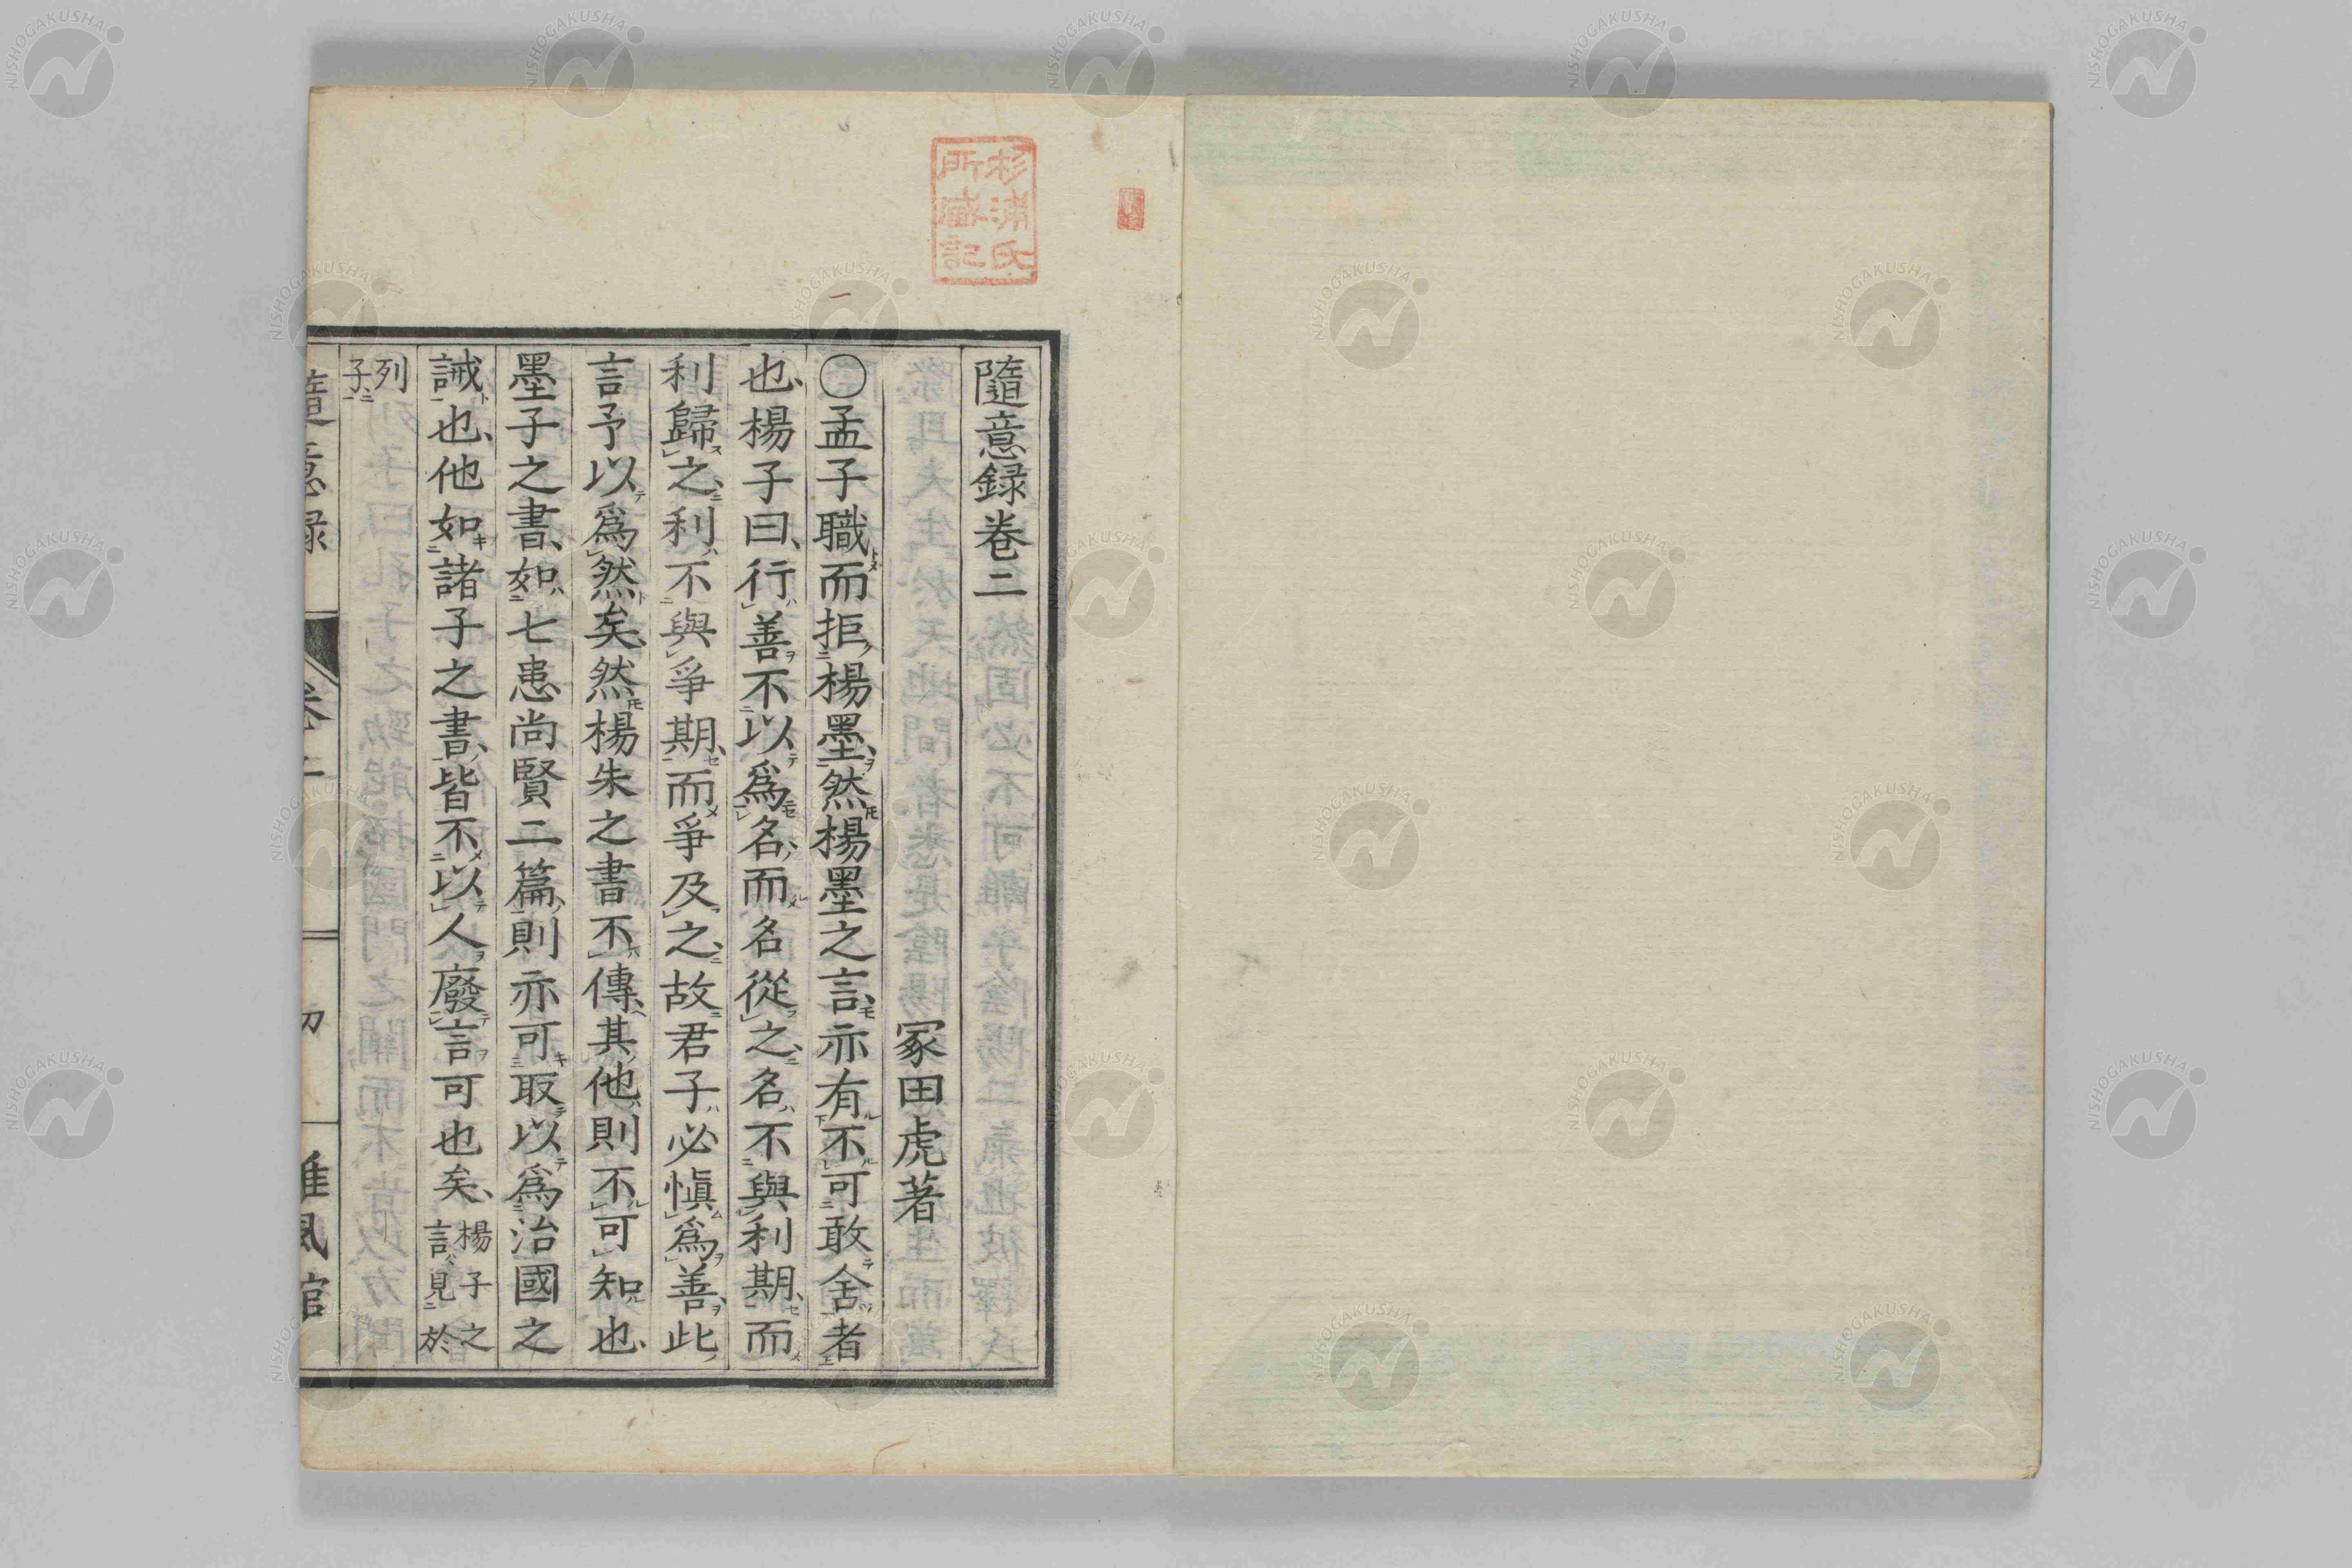 隨意録卷二
冢田虎著
○孟子職而拒楊墨、然楊墨之言、亦有不可敢舍者
也、楊子曰、行善不以爲名、而名從之、名不與利期、而
利歸之、利不與爭期、而爭及之、故君子必愼爲善、此
言予以爲然矣、然楊朱之書不傳、其他則不可知也、
墨子之書、如七患尚賢二篇、則亦可取以爲治國之
誡也、他如諸子之書、皆不以人廢言可也矣、楊子之言見於
列子
隨意録 卷二 雄風館
杉浦氏所藏記
NISHOGAKUSHA